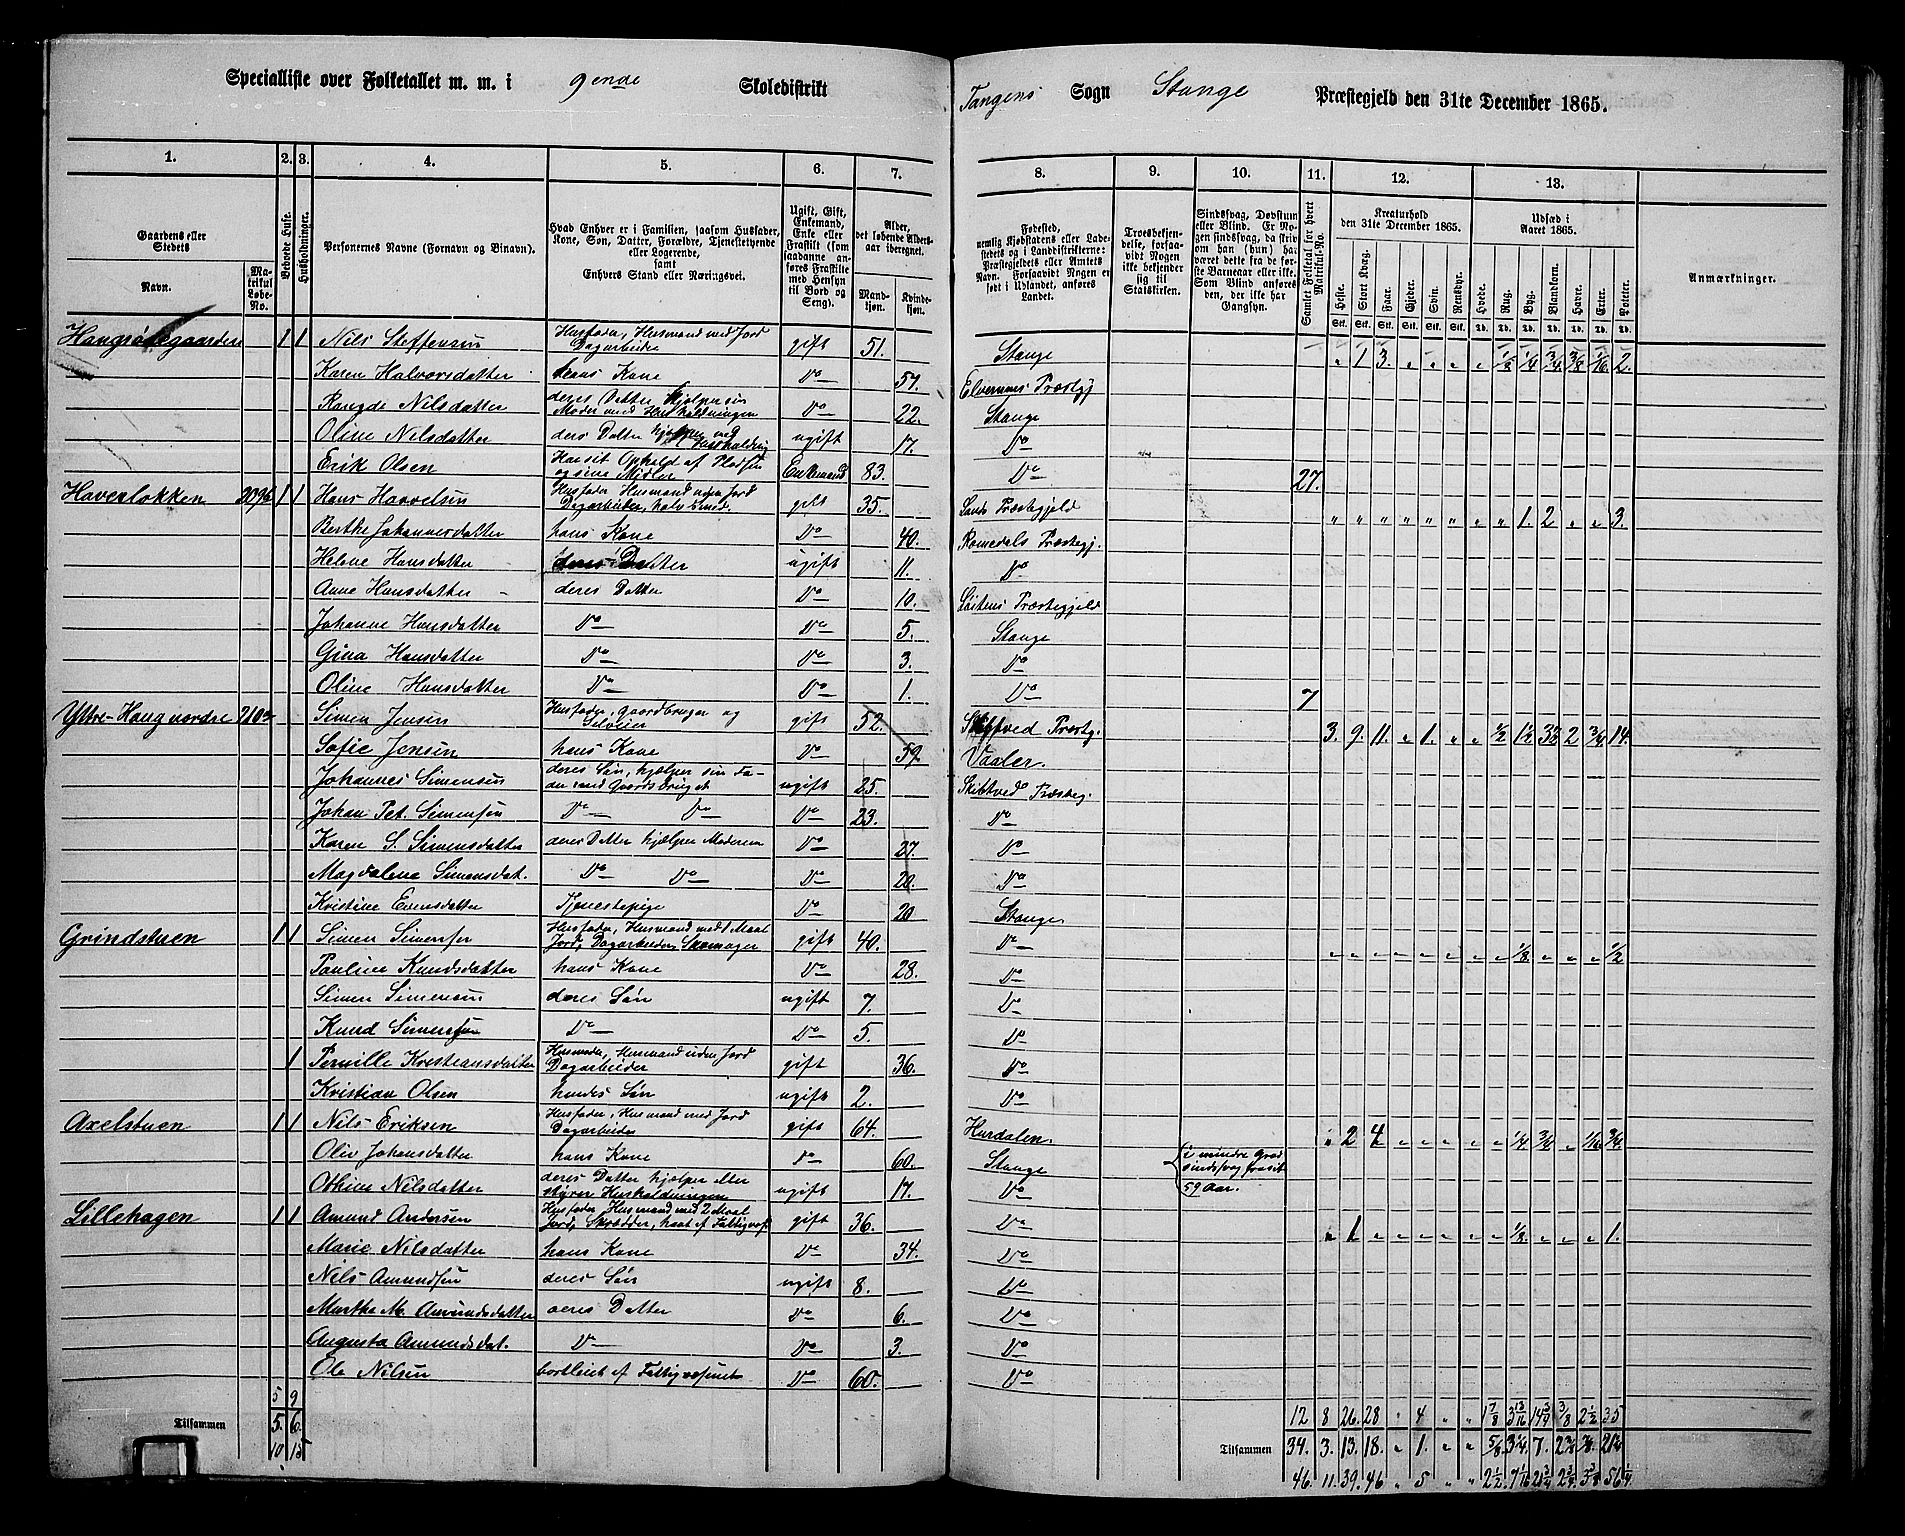 Specialliste over Folketallet m. m. i 9ende Skoledistrikt
Tangens Sogn Stange Præstegjeld den 31te December 1865.
1. 2. 3. 4. 5. 6. 7.
8. 9. 10. 11. 12. 13.
Gaardens eller Stedets
Navn.
Matrikul Løbe-No.
Beboede Huse.
Husholdninger.
Personernes Navne (Fornavn og Binavn).
Hvad Enhver er i Familien, saasom Husfader, Kone, Søn, Datter, Forældre, Tjenestetyende eller Logerende, samt Enhvers Stand eller Næringsvei.
Ugift, Gift, Enkemand, Enke eller Fraskilt (som saadanne anføres Fraskilte med Hensyn til Bord og Seng).
Alder, det løbende Aldersaar iberegnet.
Mandkjøn. Kvindekjøn.
Fødested, nemlig Kjøbstadens eller Ladestedets og i Landdistrikterne: Præstegjeldets eller Amtets Navn. Forsaavidt Nogen er født i Udlandet, anføres Landet.
Troesbekjendelse, forsaavidt Nogen ikke bekjender sig til Statskirken.
Sindssvag, Døvstum eller Blind. Er Nogen sindssvag, da skrives om han (hun) har været dette fra de første Barneaar eller ikke. Som Blind anføres den, der ikke har Gangsyn.
Samlet Folketal for hvert Matrikul-No.
Kreaturhold den 31te December 1865.
Heste. Stort Kvæg. Faar. Gjeder. Svin. Rensdyr.
Udsæd i Aaret 1865.
Hvede. Rug. Byg. Blandkorn. Havre. Erter. Poteter.
Anmærkninger.
Stk. Stk. Stk. Stk. Stk. Stk. Td. Td. Td. Td. Td. Td. Td.
1 1 Nils Steffensen Husfader, Husmand med Jord Dagarbeider gift 51. Stange " 1 3. " " " " 1/8 1/4 3/4 3/8 1/16 2.
Karen Halvorsdatter hans Kone Do 57. Elverums Præstgj
Nilsdatter deres Datter hjælper sin Moder med Husholdningen Do 22. Stange
Oline Nilsdatter deres Datter hjælper ved Husholdning ugift 17. Do
Erik Olsen Ophold af Pladsen og sine Midler Enkemand 83. Do 27.
Haverløkken 209b 1 1 Hans Haavelsen Husfader Husmand uden Jord Dagarbeider, halv smed. gift 35. Lands Præstegjeld " " " " " " " " 1. 2 " " 3.
Berthe Johannesdatter hans Kone Do 40. Romedals Præstegj.
Helene Hansdatter deres Datter ugift 11. Do
Anne Hansdatter deres Datter Do 10. Løitens Præstegjeld
Johanne Hansdatter Do Do 5. Stange
Gina Hansdatter Do Do 3. Do
Oline Hansdatter Do Do 1. Do 7
Yttre-Haug nordre 210 Simen Jensen Husfader, Gaardbruger og Selveier gift 52. Skiptved Præstg. 3. 9. 11. " 1. " " 1/2 1 1/2 2 3/4 14.
Sofie Jensen hans Kone Do 59. Vaaler.
Johannes Simensen deres Søn, hjælper sin Fader med Gaardsbruget ugift 25. Skibtved Præsteg.
Johan Pet. Simensen Do Do Do 23. Do
Karen S. Simensdatter deres Datter hjælper Moderen Do 27. Do
Magdalene Simensdat. Do Do Do 20. Do
Kristine Evensdatter Tjenestepige Do 20 Stange
Grindstuen 1 1 Simen Simensen Husfader, Husmand med 1 Maal Jord, Dagarbeider, Skomager gift 40. Do " " " " " " " " 1/8 " " " 1/2
Pauline Knudsdatter hans Kone Do 28. Do
Simen Simensen deres Søn ugift 7. Do
Knud Simensen Do Do 5. Do
1 Pernille Kristiansdatter Husmoder, Husmand uden Jord Dagarbeider gift 36. Do
Kristian Olsen hendes Søn ugift 2. Do
Axelstuen 1 1 Nils Eriksen Husfader, Husmand med Jord Dagarbeider gift 64. Hurdalen. " 2 4 " " " " " 1/4 3/4 " 1/16 3/4
Oliv Johansdatter hans Kone Do 60. Stange i mindre Grad sindssvag 59 Aar.
Othine Nilsdatter deres Datter hjælper eller styrer Husholdningen ugift 17. Do
Lillehagen 1 1 Amund Andersen Husfader Husmand med 2 Maal Jord, Skrædder, gift 36. Do " 1 " " " " " " 1/8 " " " 1.
Marie Nilsdatter hans Kone Do 34. Do
Nils Amundsen deres Søn ugift 8. Do
Marthe M. Amundsdatter deres Datter Do 6. Do
Augusta Amundsdat. Do Do 3. Do
Ole Nilsen bortleiet af Fattigvæsenet Do 60. Do
5 9 12 8 26. 28 " 4 " " 1 7/8 3 13/16 14 3/4 3/8 2 1/2 35
Tilsammen 5. 6. Tilsammen 34. 3. 13. 18. " 1. " " 5/8 3 1/4 7. 2 3/8 7/8 21 1/4
10 15 46. 11. 39. 46 " 5 " " 2 1/2 7 1/16 21 3/4 2 3/4 3 3/8 56 1/4